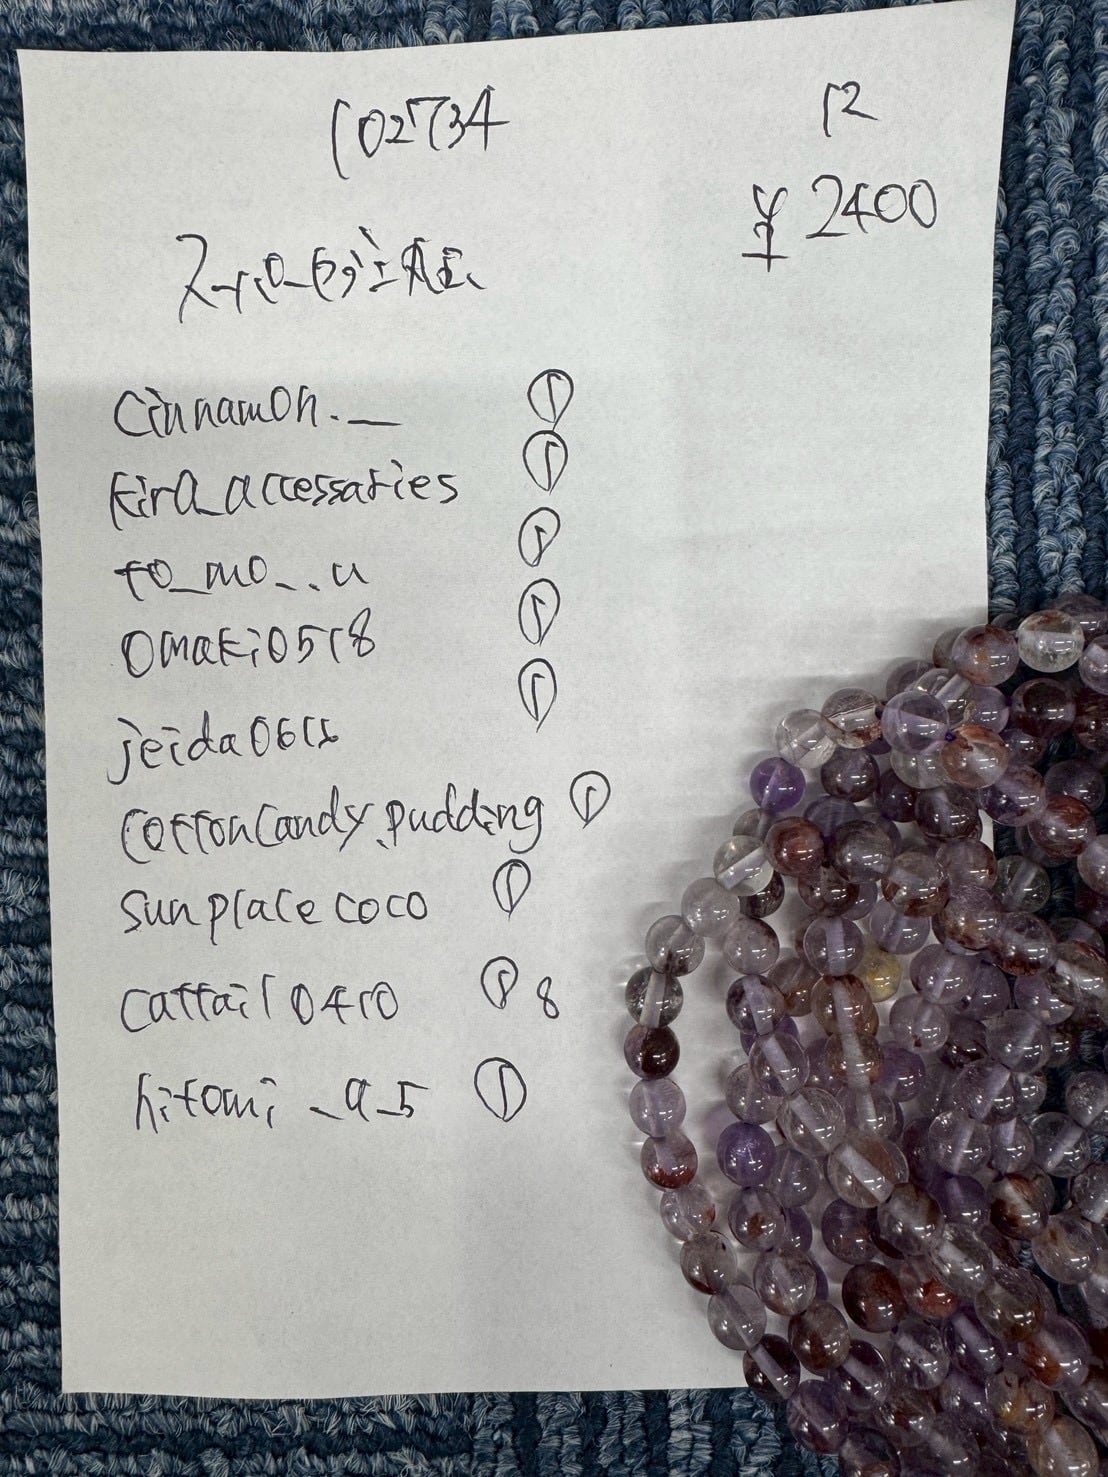 102734
12
¥2400
スーパーセブン
cinnamon._ ①
kira_accessaries ①
to_mo_..u ①
omaki0518 ①
jeida0611 ①
cottoncandy.pudding ①
sunplacecoco ①
cattail0410 ① 8
hitomi_a_5 ①